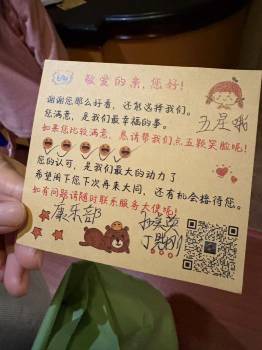 敬爱的亲,您好!
谢谢您那么好看,还能选择我们。
您满意,是我们最幸福的事。
五星哦
如果您比较满意,恳请帮我们点五颗笑脸呢!
您的认可,是我们最大的动力了
希望阁下您下次再来大同,还有机会接待您。
如有问题请随时联系服务大使呢!
康乐部